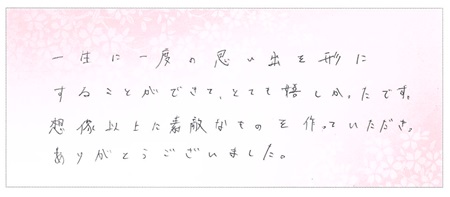 一生に一度の思い出を形に
することができて、とても嬉しかったです。
想像以上に素敵なものを作っていただき、
ありがとうございました。